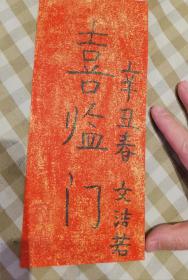 喜临门
辛丑春 文洁若